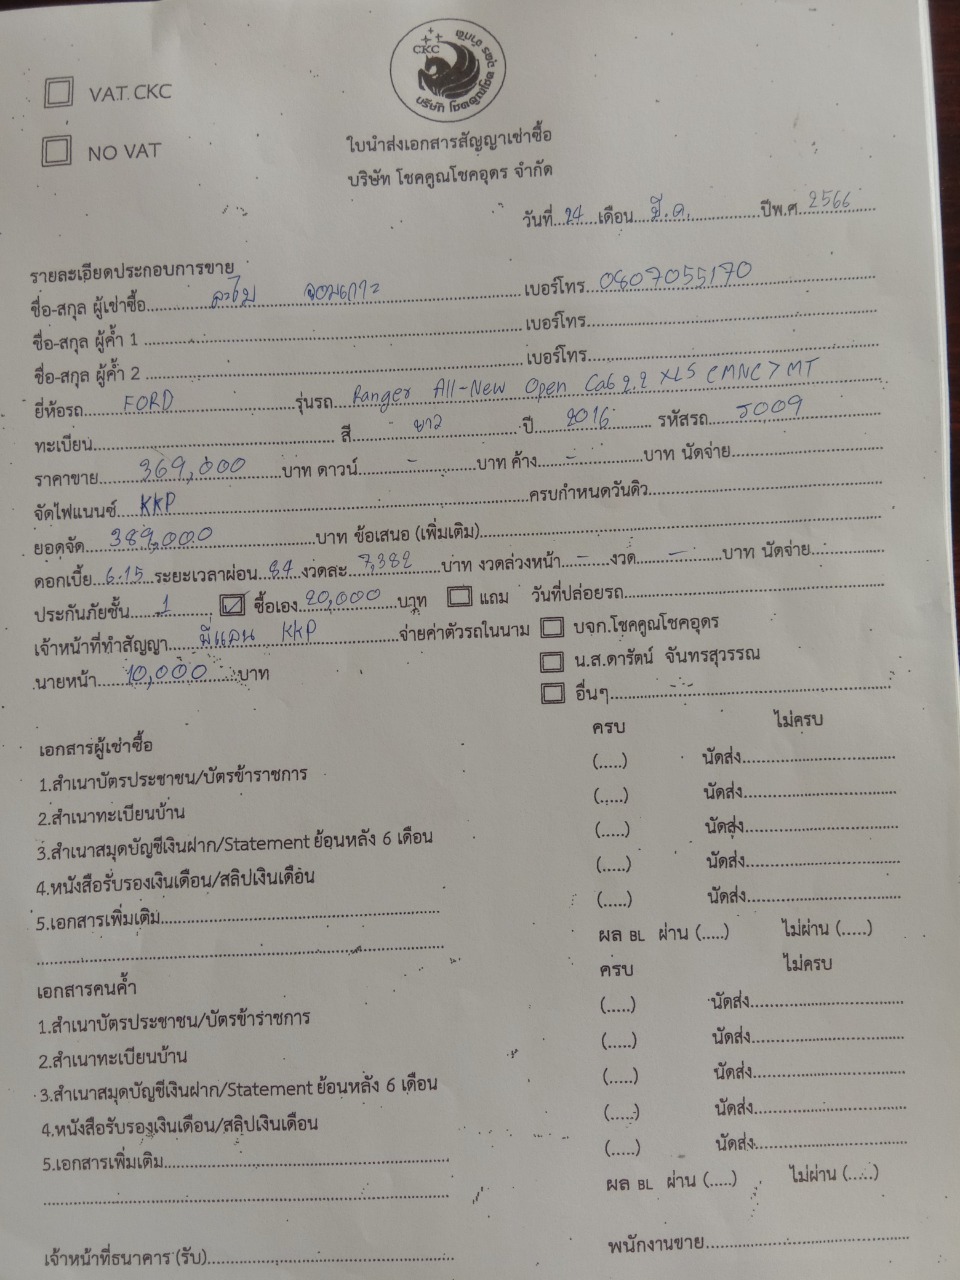 CKC
บริษัท โชคคูณโชคอุดร จำกัด
VAT. CKC
NO VAT
ใบนำส่งเอกสารสัญญาเช่าซื้อ
บริษัท โชคคูณโชคอุดร จำกัด
วันที่ 24 เดือน มี.ค. ปีพ.ศ. 2566
รายละเอียดประกอบการขาย
ชื่อ-สกุล ผู้เช่าซื้อ ละไม จอมเกาะ เบอร์โทร 0807055170
ชื่อ-สกุล ผู้ค้ำ 1 เบอร์โทร
ชื่อ-สกุล ผู้ค้ำ 2 เบอร์โทร
ยี่ห้อรถ FORD รุ่นรถ Ranger All-New Open Cab 2.2 XLS (MNC) MT
ทะเบียน สี ขาว ปี 2016 รหัสรถ J009
ราคาขาย 369,000 บาท ดาวน์ - บาท ค้าง - บาท นัดจ่าย
จัดไฟแนนซ์ KKP ครบกำหนดวันดิว
ยอดจัด 389,000 บาท ข้อเสนอ (เพิ่มเติม)
ดอกเบี้ย 6.15 ระยะเวลาผ่อน 84 งวดละ 7,382 บ่าท งวดล่วงหน้า - งวด - บาท นัดจ่าย
ประกันภัยชั้น 1 ซื้อเอง 20,000 บาท แถม วันที่ปล่อยรถ
เจ้าหน้าที่ทำสัญญา มี่แลน KKP จ่ายค่าตัวรถในนาม บจก.โชคคูณโชคอุดร
นายหน้า 10,000 บาท น.ส.ดารัตน์ จันทรสุวรรณ
อื่นๆ
เอกสารผู้เช่าซื้อ ครบ ไม่ครบ
1.สำเนาบัตรประชาชน/บัตรข้าราชการ (.....) นัดส่ง
2.สำเนาทะเบียนบ้าน (.....) นัดส่ง
3.สำเนาสมุดบัญชีเงินฝาก/Statement ย้อนหลัง 6 เดือน (.....) นัดส่ง
4.หนังสือรับรองเงินเดือน/สลิปเงินเดือน (.....) นัดส่ง
5.เอกสารเพิ่มเติม (.....) นัดส่ง
ผล BL ผ่าน (.....) ไม่ผ่าน (.....)
เอกสารคนค้ำ ครบ ไม่ครบ
1.สำเนาบัตรประชาชน/บัตรข้าราชการ (.....) นัดส่ง
2.สำเนาทะเบียนบ้าน (.....) นัดส่ง
3.สำเนาสมุดบัญชีเงินฝาก/Statement ย้อนหลัง 6 เดือน (.....) นัดส่ง
4.หนังสือรับรองเงินเดือน/สลิปเงินเดือน (.....) นัดส่ง
5.เอกสารเพิ่มเติม (.....) นัดส่ง
ผล BL ผ่าน (.....) ไม่ผ่าน (.....)
เจ้าหน้าที่ธนาคาร (รับ) พนักงานขาย